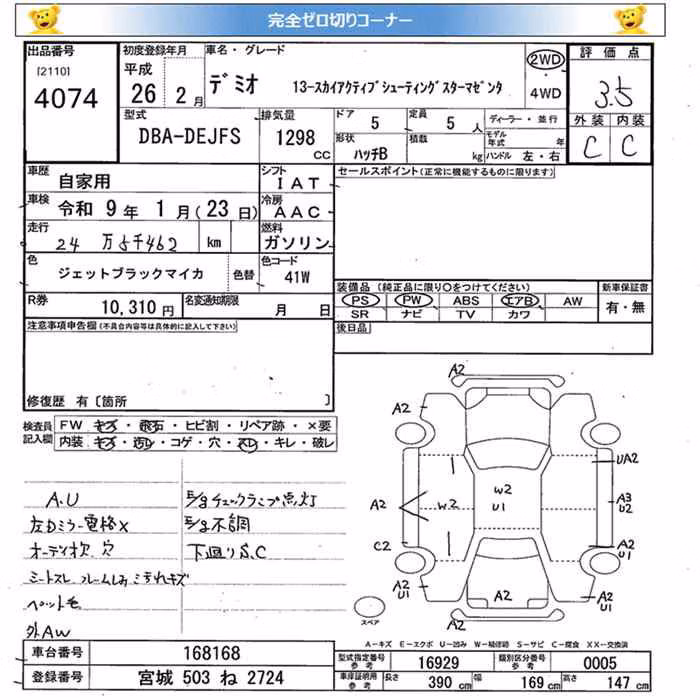 完全ゼロ切りコーナー
出品番号 初度登録年月 車名・グレード 2WD 評価点
[2110] 平成
4074 26 2月 デミオ 13-スカイアクティブシューティングスターマゼンタ 4WD 3.5
型式 排気量 ドア 定員 ディーラー・並行 外装 内装
DBA-DEJFS 1298 cc 5 5 人 モデル年式 年 C C
形状 積数
ハッチB kg ハンドル 左・右
車歴 自家用 シフト IAT セールスポイント(正常に機能するものに限ります)
車検 令和 9年 1月(23日) 冷房 AAC
走行 24 万5千462 km 燃料 ガソリン
色 ジェットブラックマイカ 色替 色コード 41W
装備品(純正品に限り○をつけてください) 新車保証書
R券 10,310円 名変通知期限 月 日 PS PW ABS エアB AW 有・無
SR ナビ TV カワ
注意事項申告欄(不具合内容等は具体的に記入して下さい) 後日品
修復歴 有〔箇所 〕
検査員記入欄 FW キズ・飛石・ヒビ割・リペア跡・×要
内装 キズ・汚れ・コゲ・穴・スレ・キレ・破レ
A.U E/gチェックランプ点灯
左Dミラー電格X E/g不調
オーディオ欠 穴 下廻りS,C
シートスレ フレームしみこ汚れキズ
ペット毛
外AW
A2
A2
UA2
A2 W2 W2 U1 A3 U2
C2 A2 U1
A2 U1 A2 A2 U1
スペア A2
A-キズ E-エクボ U-凹み W-補修跡 S-サビ C-腐食 XX-交換済
車台番号 168168 型式指定番号 参考 16929 類別区分番号 参考 0005
登録番号 宮城 503 ね 2724 車庫証明用 参考 長さ 390 cm 幅 169 cm 高さ 147 cm